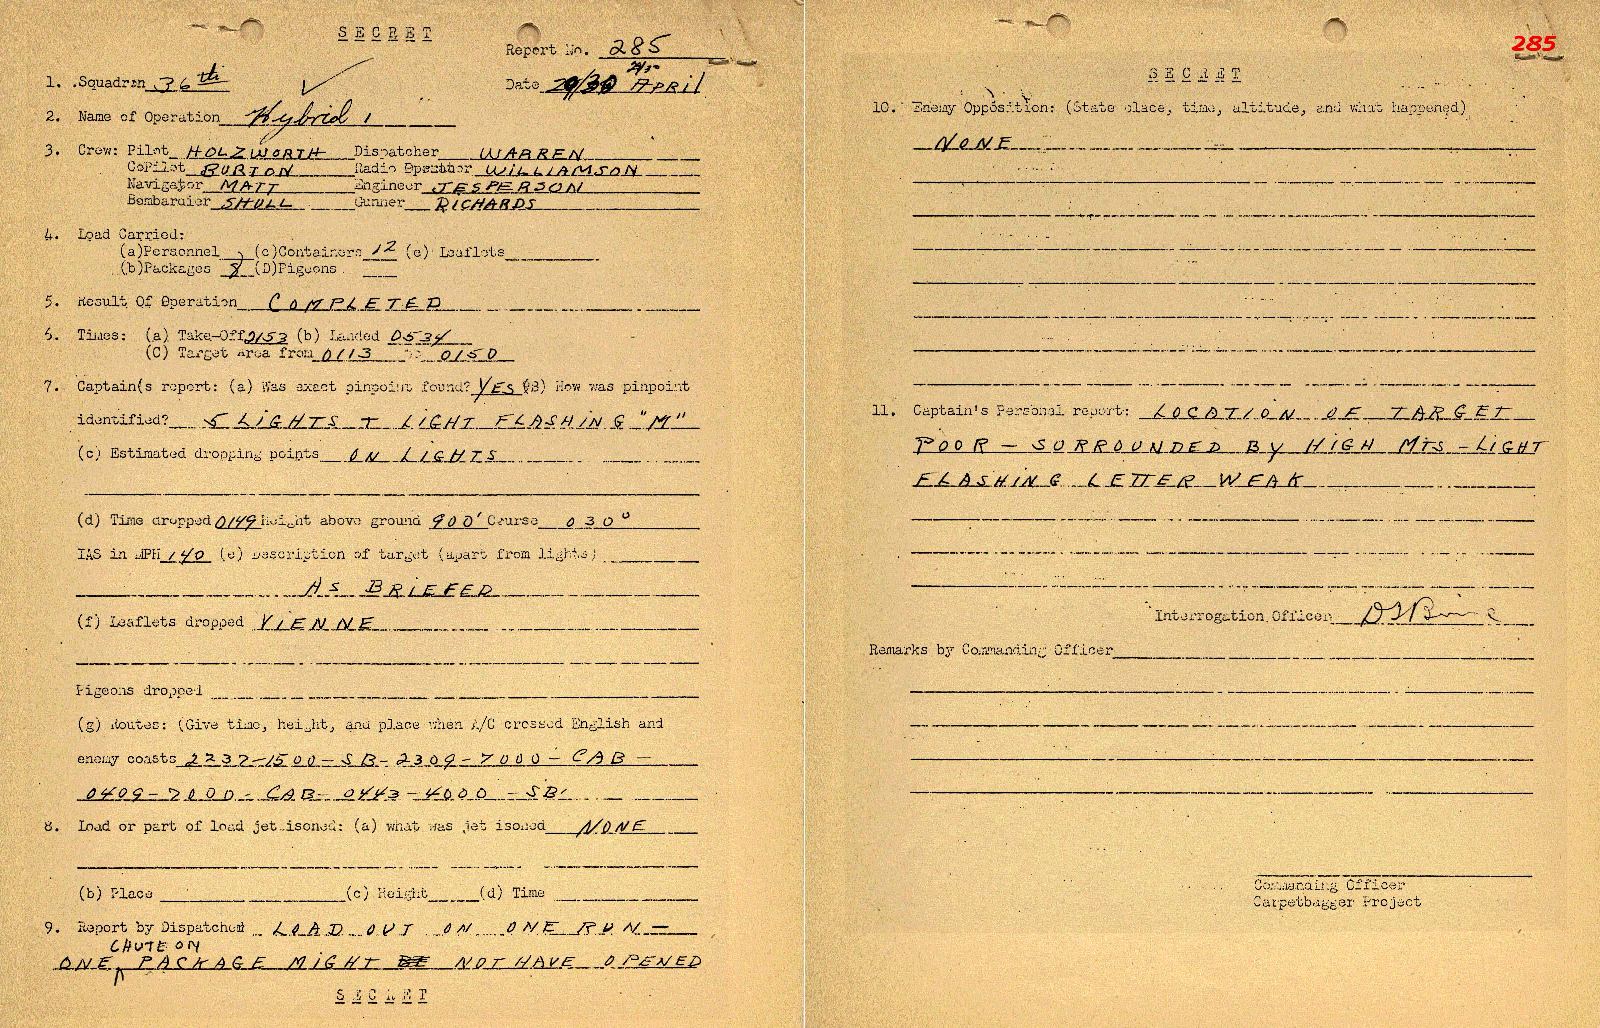 SECRET
Report No. 285
1. Squadron 36th
Date 29/30 APRIL
2. Name of Operation Hybrid 1
3. Crew: Pilot HOLZWORTH Dispatcher WARREN
CoPilot BURTON Radio Operator WILLIAMSON
Navigator MATT Engineer JESPERSON
Bombardier SHULL Gunner RICHARDS
4. Load Carried:
(a)Personnel (c)Containers 12 (e) Leaflets
(b)Packages 8 (D)Pigeons
5. Result Of Operation COMPLETED
6. Times: (a) Take-Off 2153 (b) Landed 0534
(C) Target Area from 0113 to 0150
7. Captain(s report: (a) Was exact pinpoint found? YES (B) How was pinpoint
identified? 5 LIGHTS + LIGHT FLASHING "M"
(c) Estimated dropping points ON LIGHTS
(d) Time dropped 0149 Height above ground 900' Course 030°
IAS in MPH 140 (e) Description of target (apart from lights)
AS BRIEFED
(f) Leaflets dropped VIENNE
Pigeons dropped
(g) Routes: (Give time, height, and place when A/C crossed English and
enemy coasts 2237-1500-SB-2309-7000-CAB-
0409-7000-CAB-0443-4000-SB
8. Load or part of load jettisoned: (a) what was jettisoned NONE
(b) Place (c) Height (d) Time
9. Report by Dispatcher LOAD OUT ON ONE RUN -
CHUTE ON
ONE PACKAGE MIGHT BE NOT HAVE OPENED
SECRET
285
SECRET
10. Enemy Opposition: (State place, time, altitude, and what happened)
NONE
11. Captain's Personal report: LOCATION OF TARGET
POOR - SURROUNDED BY HIGH MTS - LIGHT
FLASHING LETTER WEAK
Interrogation Officer
Remarks by Commanding Officer
Commanding Officer
Carpetbagger Project